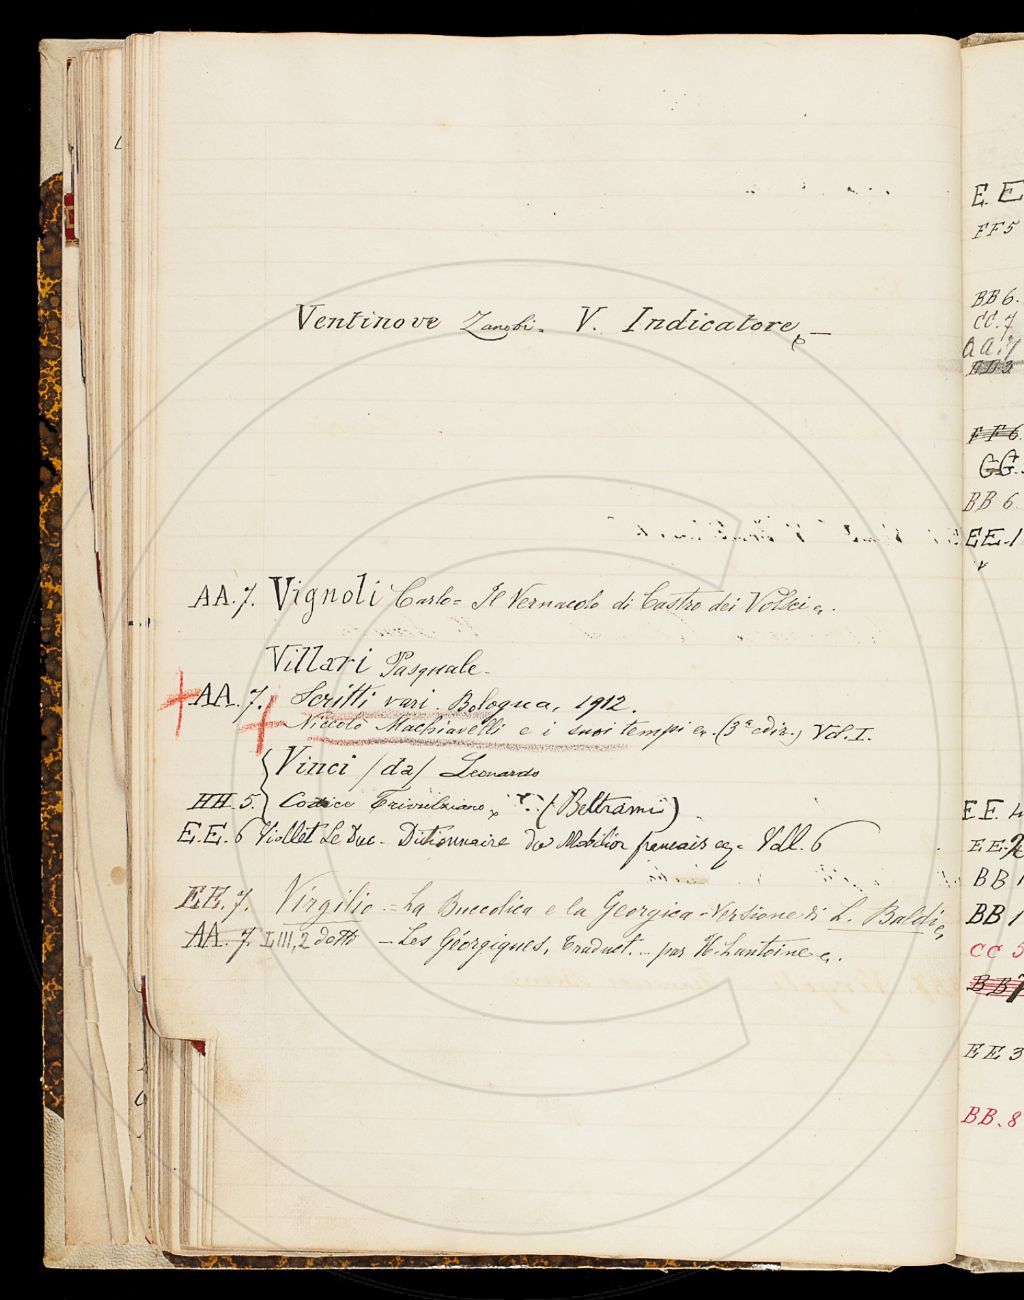 Ventinove Zanobi. V. Indicatore, —
AA. 7. Vignoli Carlo = Il Vernacolo di Castro dei Volsci
Villari Pasquale -
AA. 7. Scritti vari. Bologna, 1912.
Niccolò Machiavelli e i suoi tempi (3ª ediz.) Vol. I.
Vinci /da/ Leonardo
HH. 5. Codice Trivulziano, (Beltrami)
E.E. 6 Viollet Le Duc - Dictionnaire du Mobilier français Voll. 6
EE. 7. Virgilio = La Buccolica e la Georgica - Versione di L. Baldi
AA. 7. detto — Les Géorgiques, traduct. .. par H. Lantoine
E. E
FF 5
BB 6.
CC. 7
AA. 7
FF 6.
GG.
BB 6
EE. 1
EE. 4
EE. 2
BB 1
BB 1
CC 5
BB 7
EE 3
BB. 8